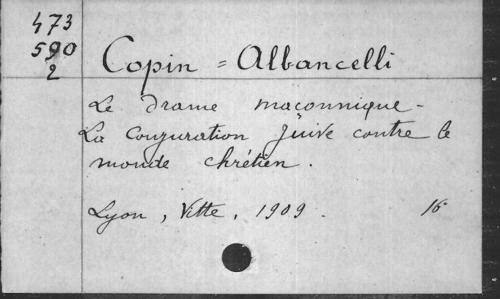 473
590
2
Copin = Albancelli
Le Drame maçonnique -
La Conjuration Juive contre le
monde chrétien .
Lyon , Vitte , 1909 . 16